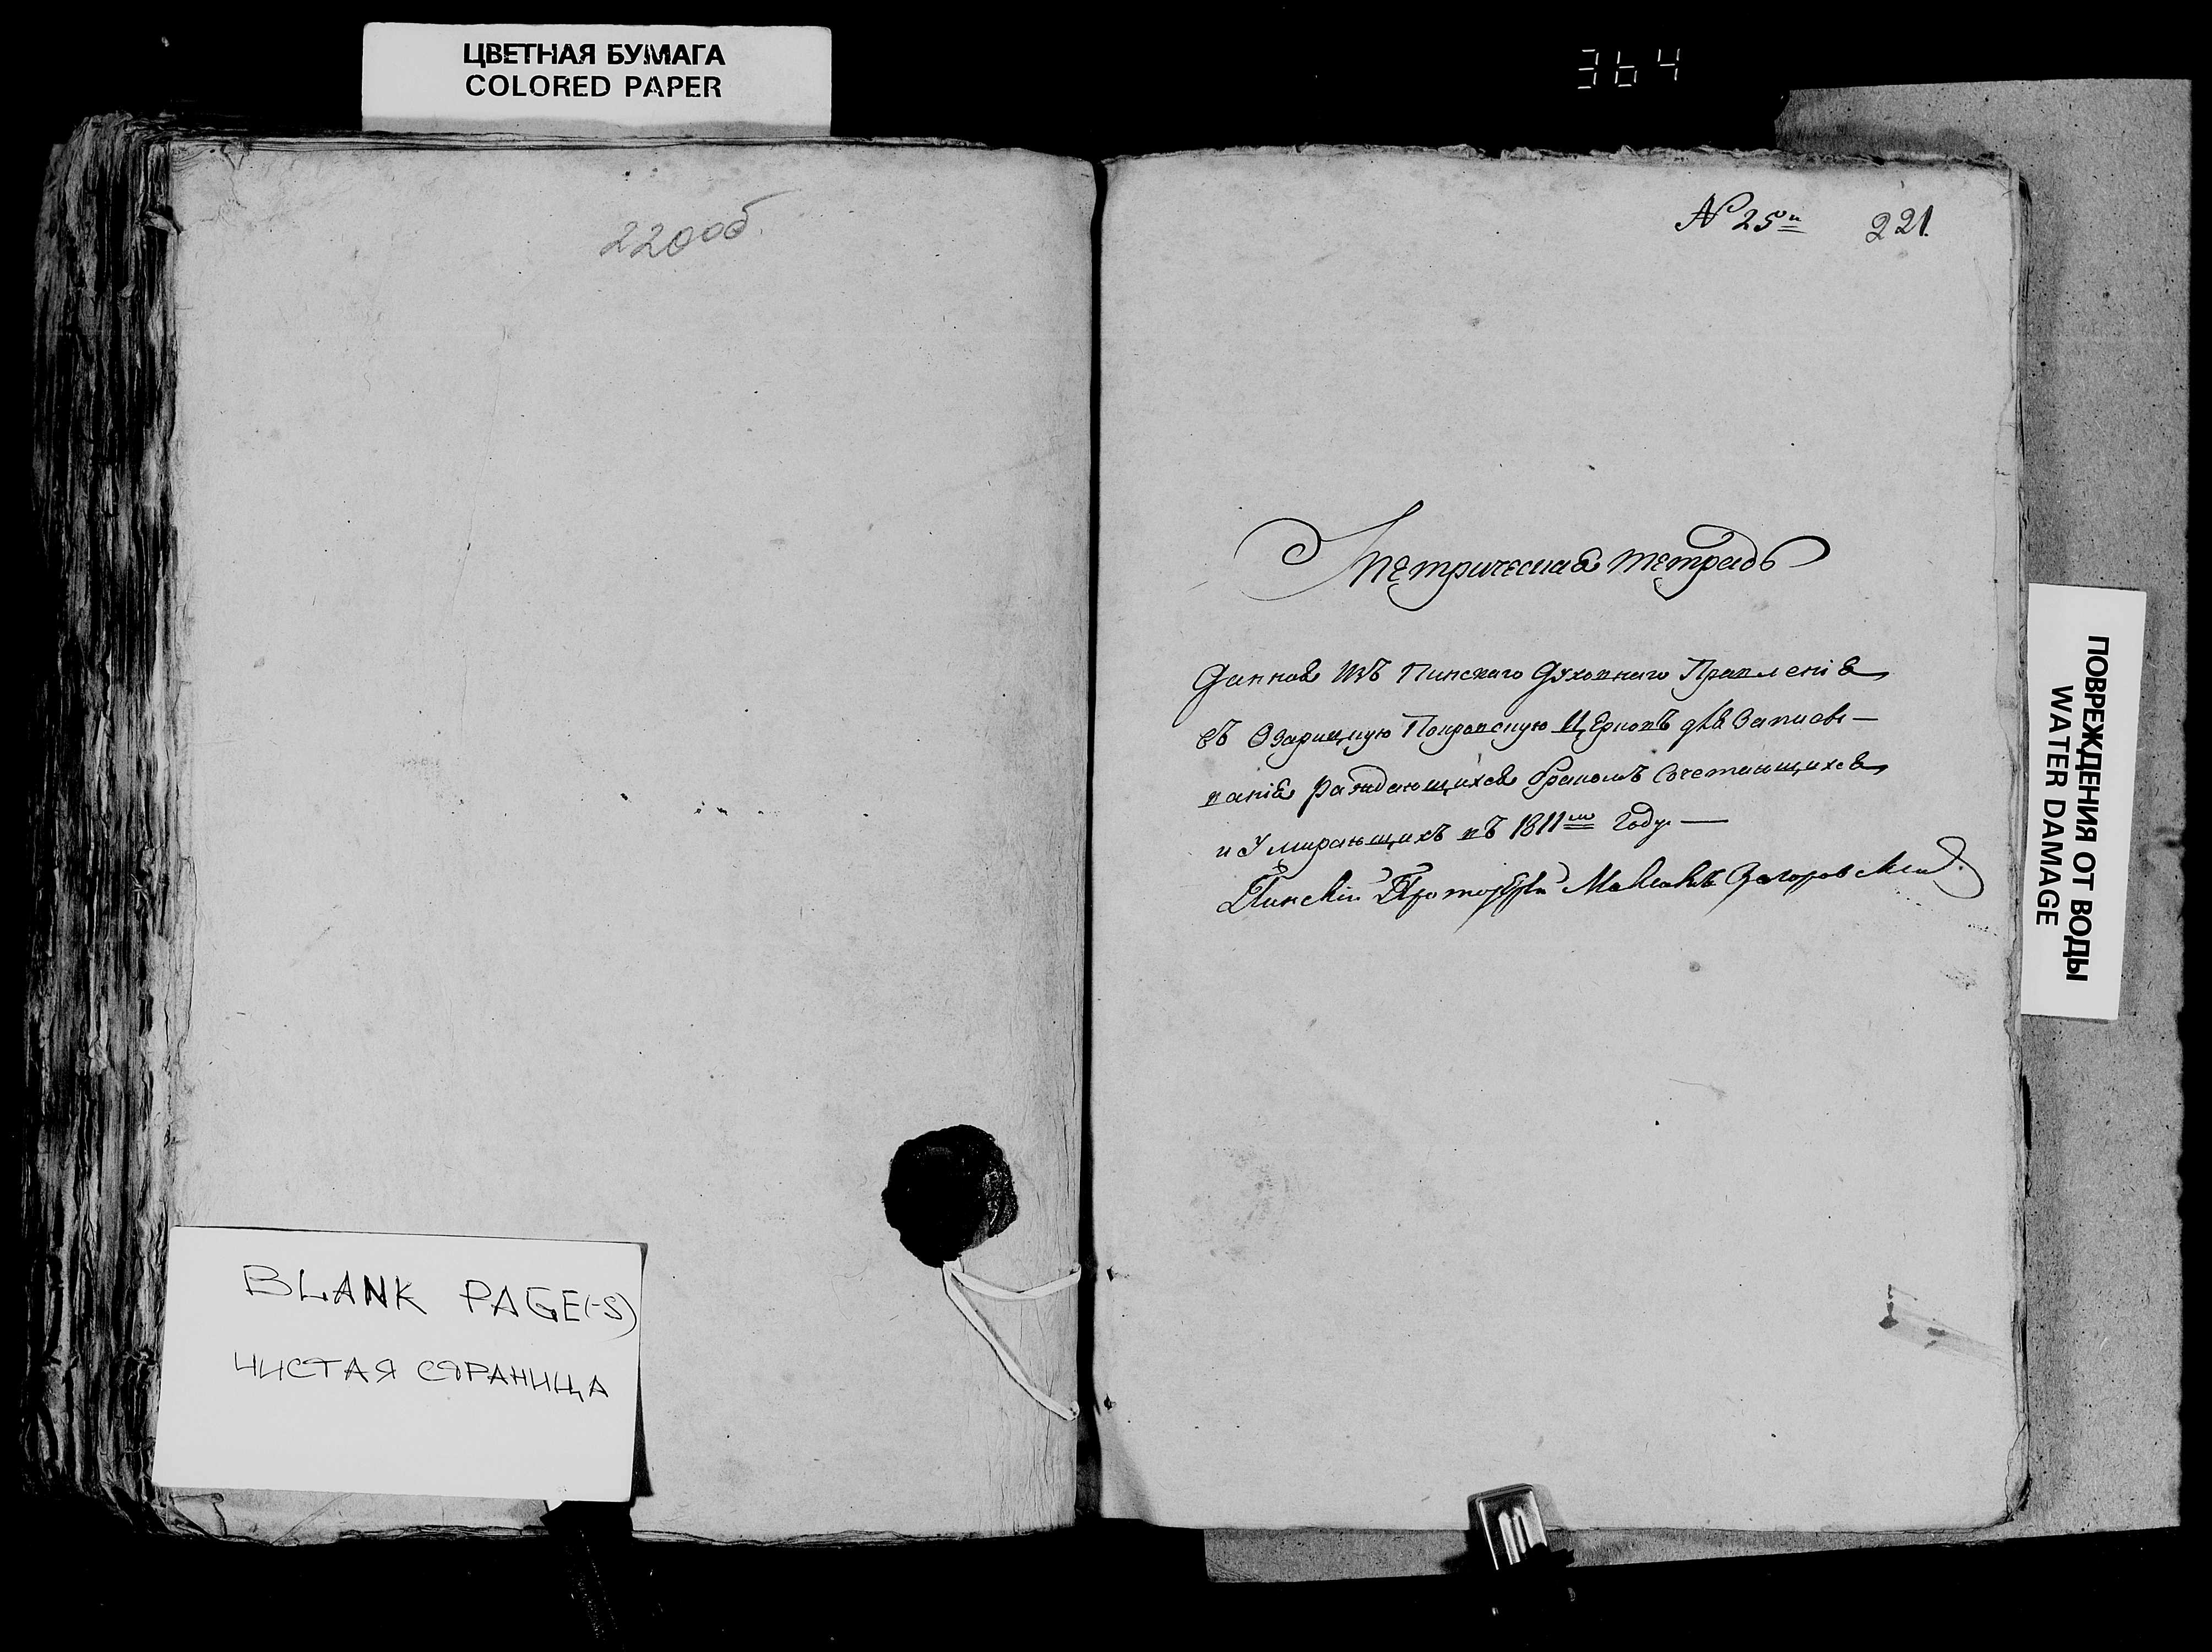 ЦВЕТНАЯ БУМАГА
COLORED PAPER
364
220об.
BLANK PAGE(-S)
ЧИСТАЯ СТРАНИЦА
№ 25й 221.
Метрическая тетрадь
Данная изъ Пинскаго Духовнаго Правленія
въ Озарицкую Покровскую Церковъ для Записы-
ванія раждающихся бракомъ сочетающихся
и Умирающихъ въ 1811мъ Году —
Пинскій
ПОВРЕЖДЕНИЯ ОТ ВОДЫ
WATER DAMAGE